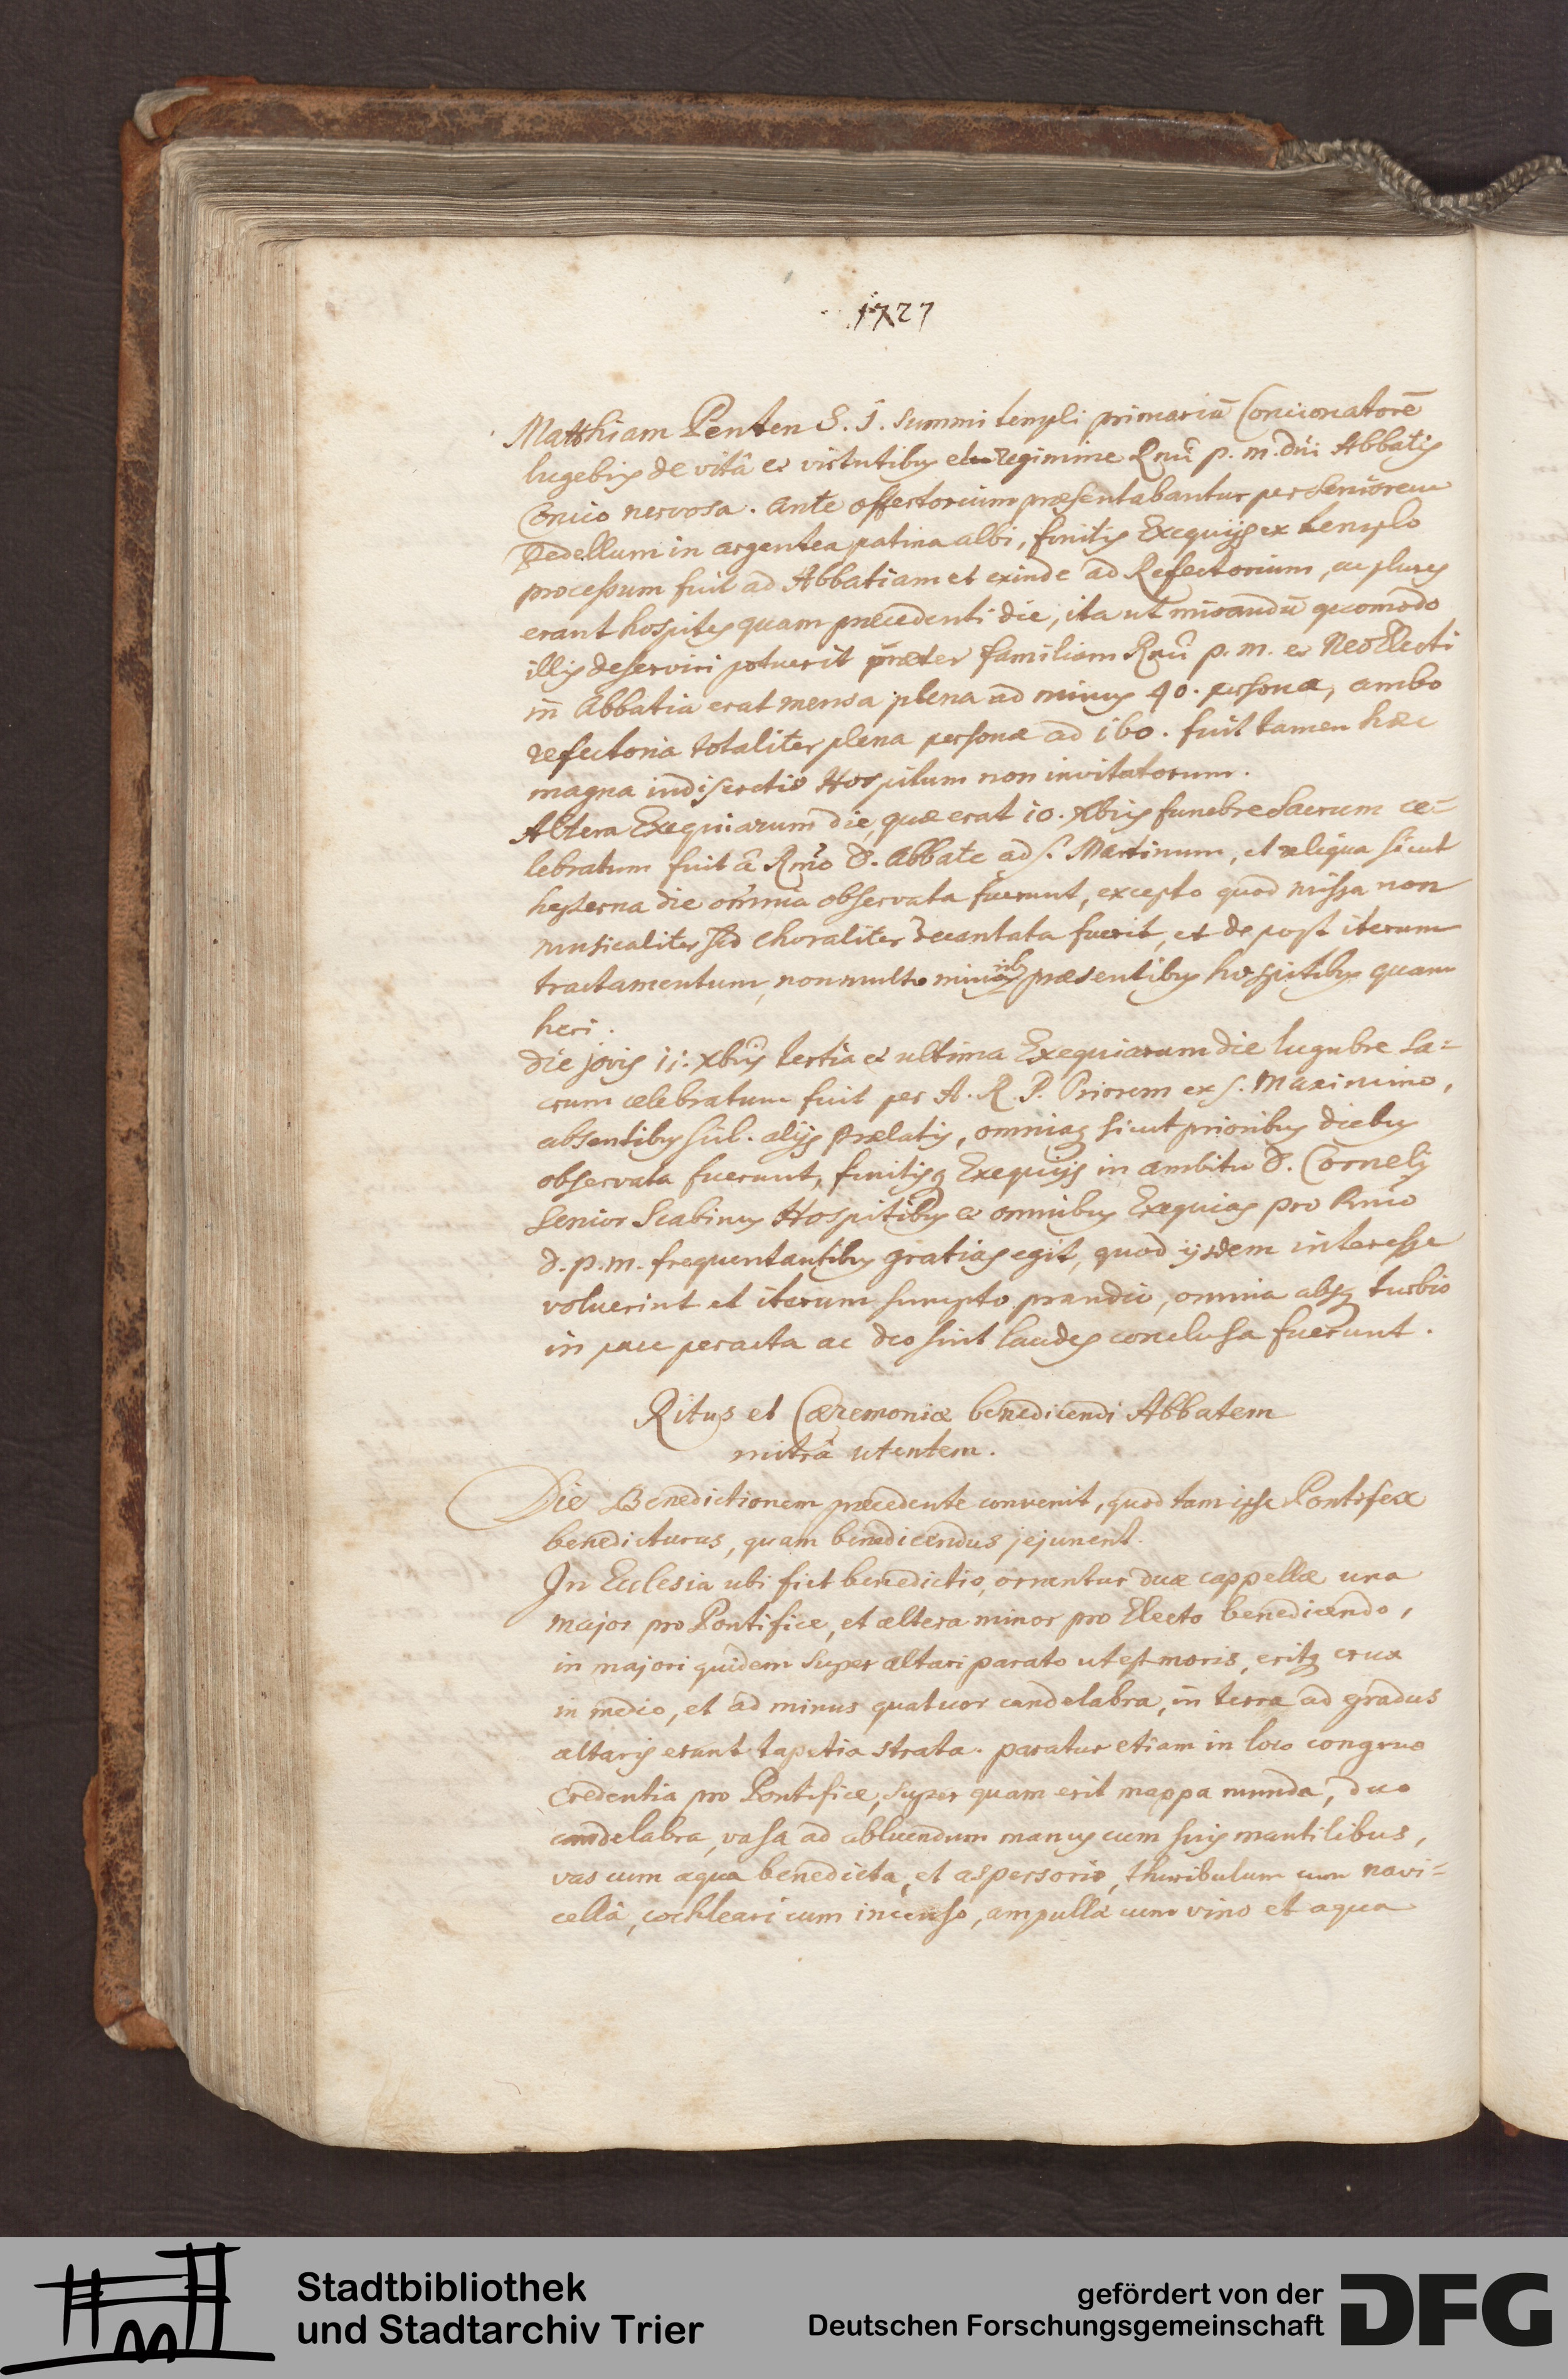 1727
Matthiam Penten S. J. summi templi primariū Concionatorē
lugebris de vitâ et virtutibus et regimine Rmi p. m. dni Abbatis
Concio nervosa. Ante offertorium præsentabantur per seniorem
Pedellum in argentea patina albi, finitis Exequijs ex templo
processum fuit ad Abbatiam et exinde ad Refectorium, ac plures
erant hospites quam præcedenti die, ita ut mirandū quomodo
illis deserviri potuerit præter familiam Rmi p. m. et Neo Electi
in Abbatia erat mensa plena ad minus 40. personæ, ambo
refectoria totaliter plena personæ ad 160. fuit tamen hæc
magna indiscretio Hospitum non invitatorum.
Altera Exequiarum die, quæ erat 10. Xbris funebre Sacrum ce-
lebratum fuit â Rmo D. Abbate ad S. Martinum, et reliqua sicut
hesterna die omnia observata fuerunt, excepto quod missa non
musicaliter sed choraliter decantata fuerit, et de post iterum
tractamentum, non multo minoribus præsentibus hospitibus quam
heri.
Die jovis 11. Xbris tertia et ultima Exequiarum die lugubre Sa=
crum celebratum fuit per A. R. P. Priorem ex S. Maximino,
absentibus scil. alijs Prælatis, omniaq sicut prioribus diebus
observata fuerunt, finitisq Exequijs in ambitu D. Cornelij
Senior Scabinus Hospitibus et omnibus Exequias pro Rmo
D. p. m. frequentantibus gratias egit, quod ijsdem interesse
voluerint et iterum sumpto prandio, omnia absq turbio
in pace peracta ac deo sint laudes conclusa fuerunt.
Ritus et Cæremoniæ benedicendi Abbatem
mitrâ utentem.
Die Benedictionem præcedente convenit, quod tam ipse Pontifex
benedicturus, quam benedicendus jejunent.
In Ecclesia ubi fiet benedictio, ornantur duæ cappellæ una
major pro Pontifice, et altera minor pro Electo benedicendo,
in majori quidem super altari parato ut est moris, eritq crux
in medio, et ad minus quatuor candelabra, in terra ad gradus
altaris erunt tapetia strata. paratur etiam in loco congruo
Credentia pro Pontifice, super quam erit mappa munda, duo
candelabra, vasa ad abluendum manus cum suis mantilibus,
vas cum aqua benedicta, et aspersorio, thuribulum cum navi=
cellâ, cochleari cum incenso, ampullæ cum vino et aqua
Stadtbibliothek
und Stadtarchiv Trier
gefördert von der
Deutschen Forschungsgemeinschaft
DFG